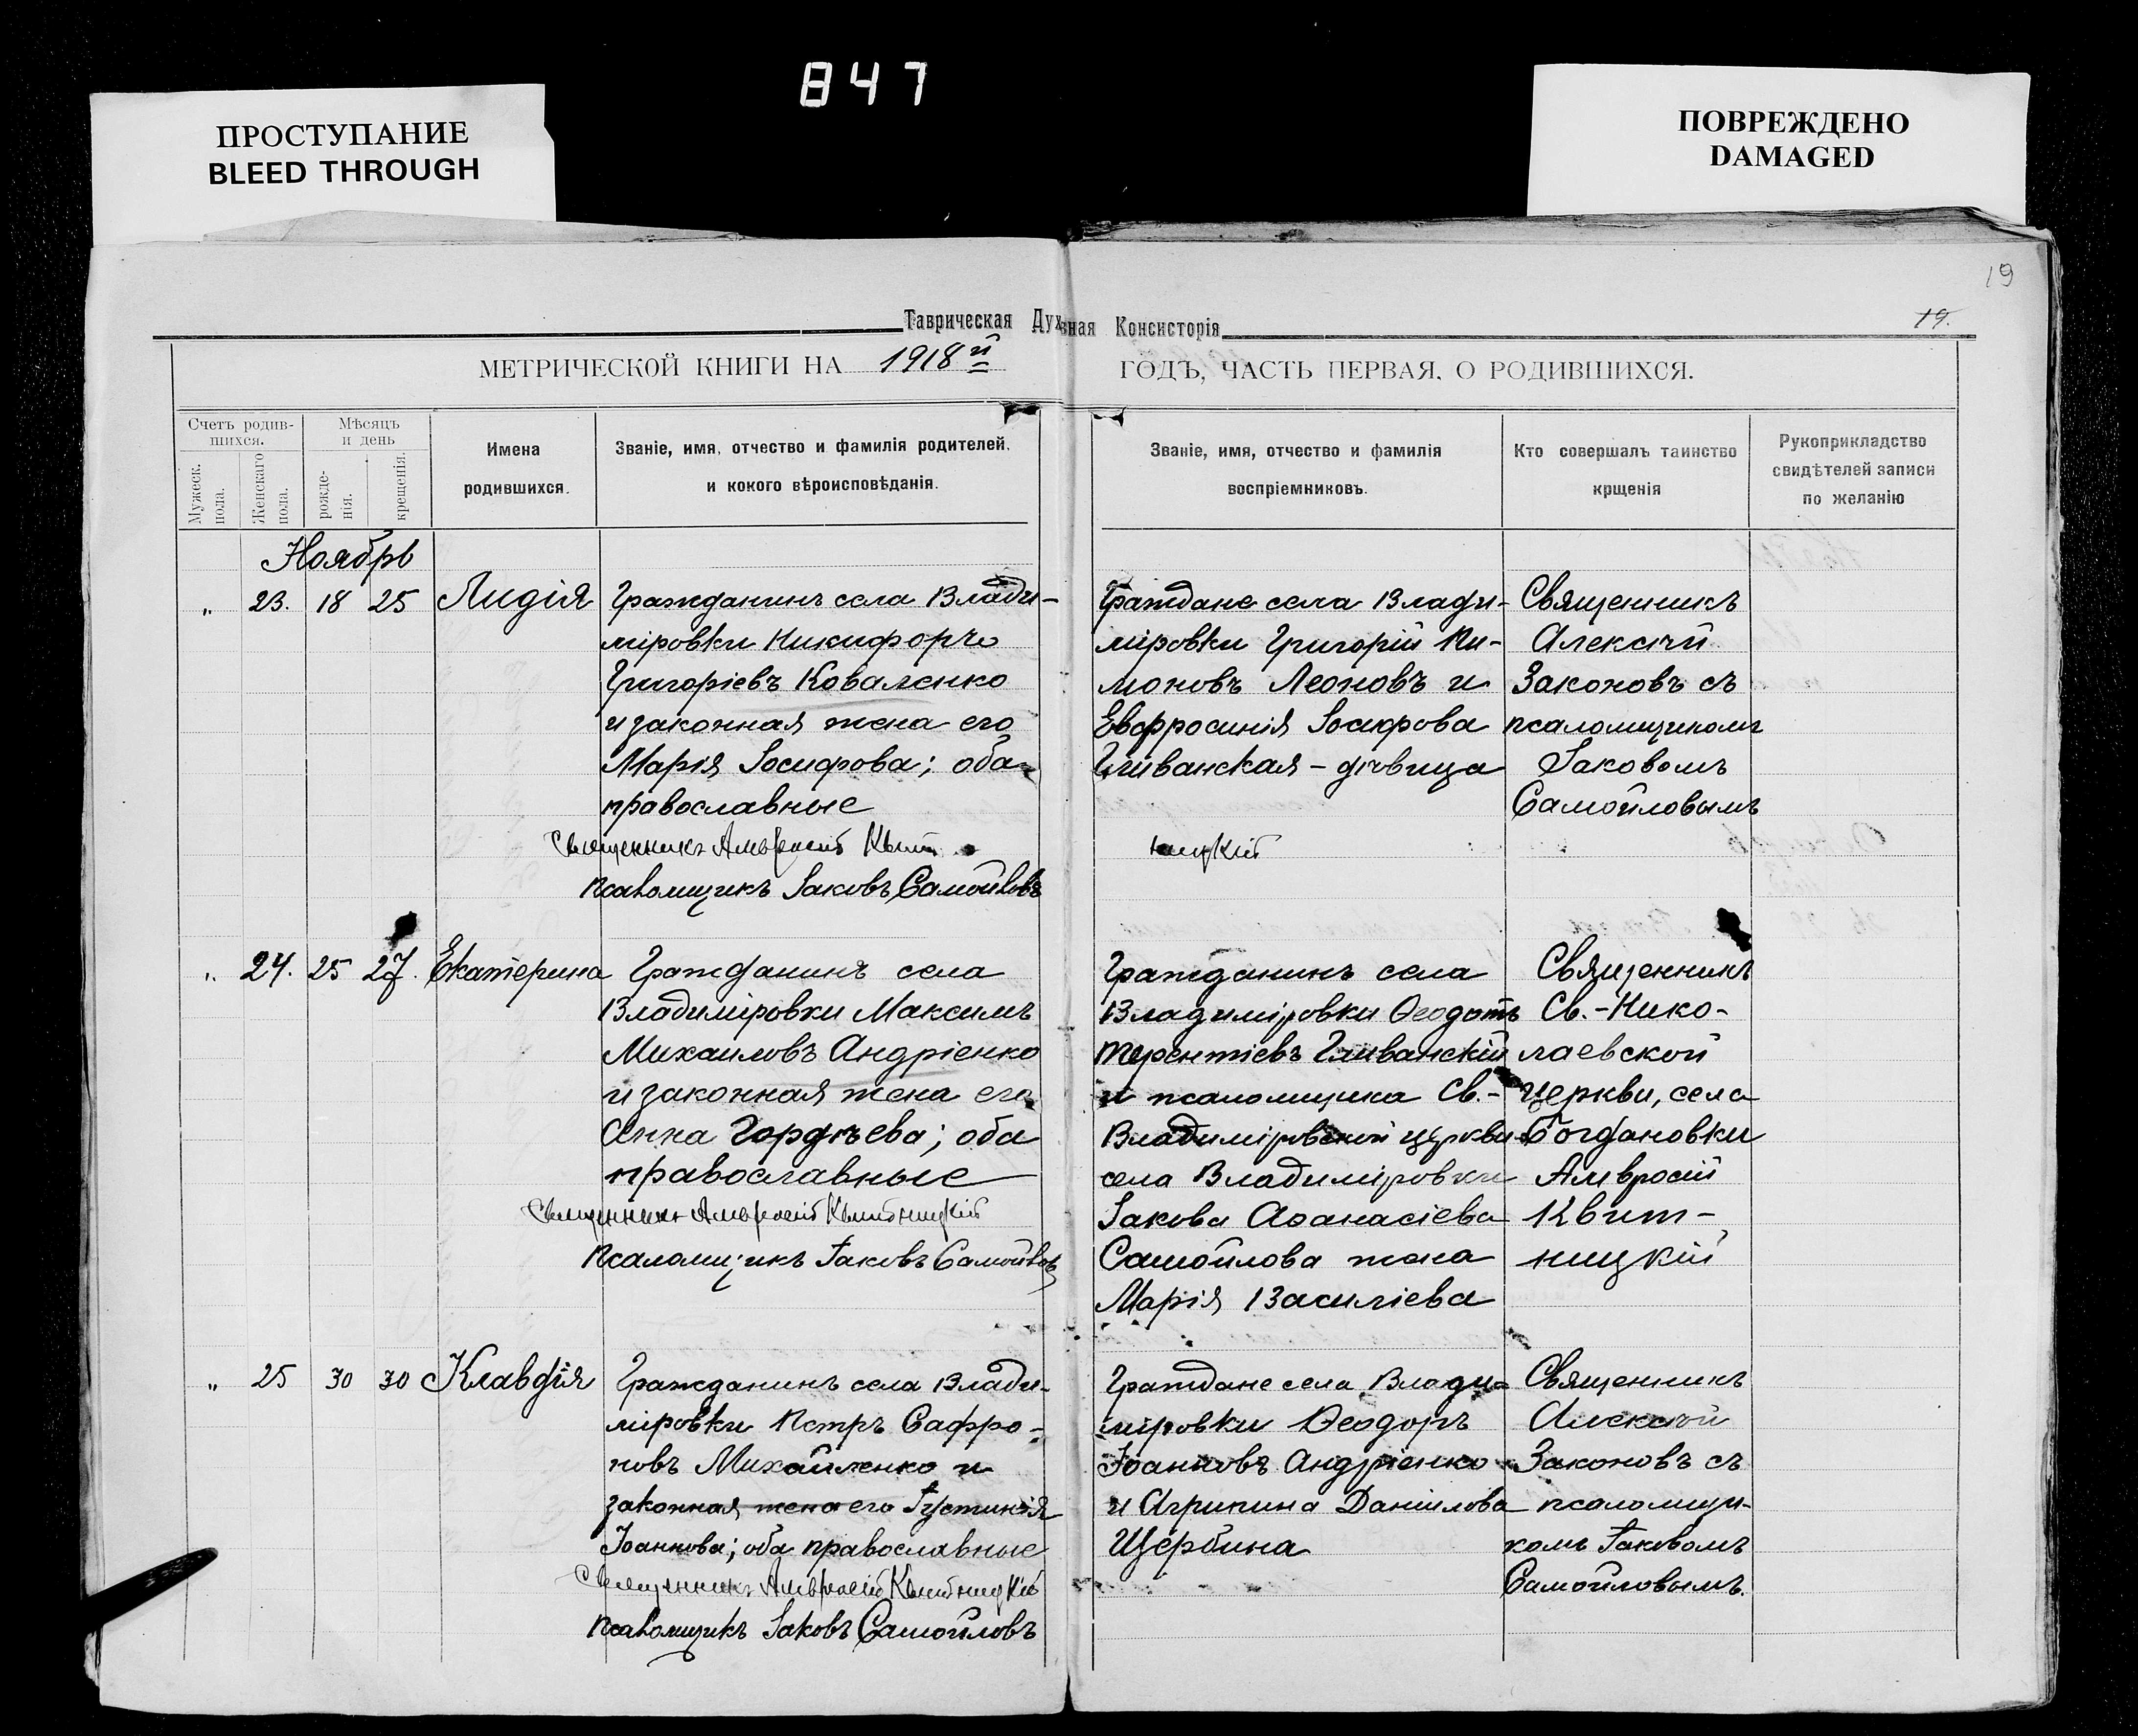 847
ПРОСТУПАНИЕ
BLEED THROUGH
ПОВРЕЖДЕНО
DAMAGED
19
19.
Таврическая Духвная Консисторія
МЕТРИЧЕСКОЙ КНИГИ НА 1918й ГОДЪ, ЧАСТЬ ПЕРВАЯ, О РОДИВШИХСЯ.
Счетъ родив-
шихся.
Мужеск.
пола.
Женскаго
пола.
Мѣсяцъ
и день
рожде-
нія.
крещенія.
Имена
родившихся.
Званіе, имя, отчество и фамилія родителей,
и кокого вѣроисповѣданія.
Званіе, имя, отчество и фамилія
воспріемниковъ.
Кто совершалъ таинство
крщенія
Рукоприкладство
свидѣтелей записи
по желанію
Ноябрь
„ 23. 18 25 Лидія
Гражданинъ села Влади-
міровки Никифоръ
Григоріевъ Коваленко
и законная жена его
Марія Іосифова; оба
православные
Священникъ Амвросій Квит
ницкій
Псаломщикъ Іаковъ Самойловъ
Граждане села Влади-
міровки Григорій Пи-
моновъ Леоновъ и
Евфросинія Іосифова
Гливанская - дѣвица
Священникъ
Алексѣй
Законовъ съ
псаломщикомъ
Іаковомъ
Самойловымъ
„ 24. 25 27. Екатерина
Гражданинъ села
Владиміровки Максимъ
Михаиловъ Андріенко
и законная жена его
Анна Гордѣева; оба
православные
Священникъ Амвросій Квитницкій
Псаломщикъ Іаковъ Самойловъ
Гражданинъ села
Владиміровки Ѳеодотъ
Терентіевъ Гливанскій
и псаломщика Св.-
Владиміровской церкви
села Владиміровки
Іакова Аѳанасіева
Самойлова жена
Марія Василіева
Священникъ
Св.-Нико-
лаевской
церкви, села
Богдановки
Амвросій
Квит-
ницкій
„ 25 30 30 Клавдія
Гражданинъ села Влади-
міровки Петръ Сафро-
новъ Михайленко и
законная жена его Іустинія
Іоаннова; оба православные
Священникъ Амвросій Квитницкій
Псаломщикъ Іаковъ Самойловъ
Граждане села Влади-
міровки Ѳеодоръ
Іоанновъ Андріенко
и Агрипина Даніилова
Щербина
Священникъ
Алексѣй
Законовъ съ
псаломщи-
комъ Іаковомъ
Самойловымъ.